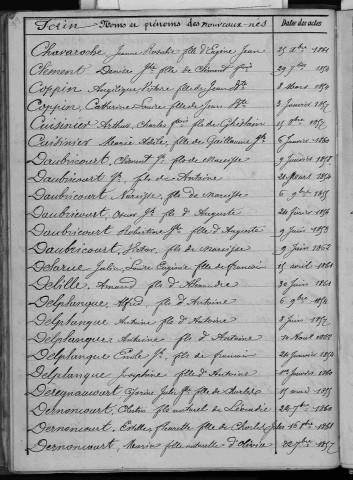 Férin Noms et prénoms des nouveaux-nés Dates des actes
Chavaroche Jeanne Rosalie fille d'Eugène Jean 25 8bre 1861
Clément Denise fille de Clément 29 7bre 1854
Coppin Angélique fille de Jean Bte 8 Mars 1854
Coppin, Catherine Laure fille de Jean Bte 3 Janvier
Cuisinier Arthur, Charles fils de Ghislain 15
Cuisinier Marie Adèle fille de Guillaume 6 Janvier 1860
Daubricourt, Clément fils de Narcisse 9 Janvier 1858
Daubricourt fils de Antoine 21 Mars 1854
Daubricourt Narcisse, fils de Narcisse 6 9bre 1855
Daubricourt, fils d'Auguste 24 février 1856
Daubricourt Robertine fille d'Auguste 9 Juin 1853
Daubricourt, Victor, fils de Narcisse 9 Juin 1862
Delarue Julie, Laure Eugénie fille de francois 15 avril 1861
Delille, Armand fils d'Alexandre 30 Juin 1861
Delplanque, Alfred, fils d'Antoine 6 9bre 1854
Delplanque Antoine fils d'Antoine 3 Juin
Delplanque, Antoine, fils d'Antoine 10 Aout
Delplanque Emile fils de francois 24 Janvier 1854
Delplanque Joséphine fille d'Antoine 1er Janvier 1860
Deregnaucourt, Jules fils de Charles 15 avril 1855
Dernoncourt, fils naturel de Léocadie 22 7bre 1860
Dernoncourt, fille de Charles 16 1861
Dernoncourt, Maria fille naturelle d'Olivia 22 7bre 1857